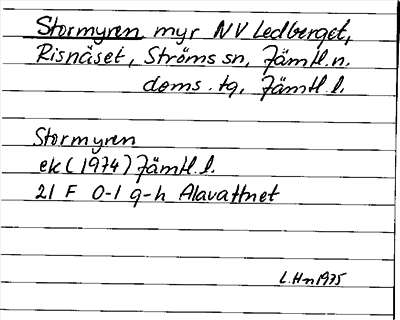 Stormyren myr NV Ledberget,
Risnäset, Ströms sn, Jämtl. n.
doms. tg, Jämtl. l.
Stormyren
ek (1974) Jämtl. l.
21 F 0-1 g-h Alavattnet
L.Hn 1975